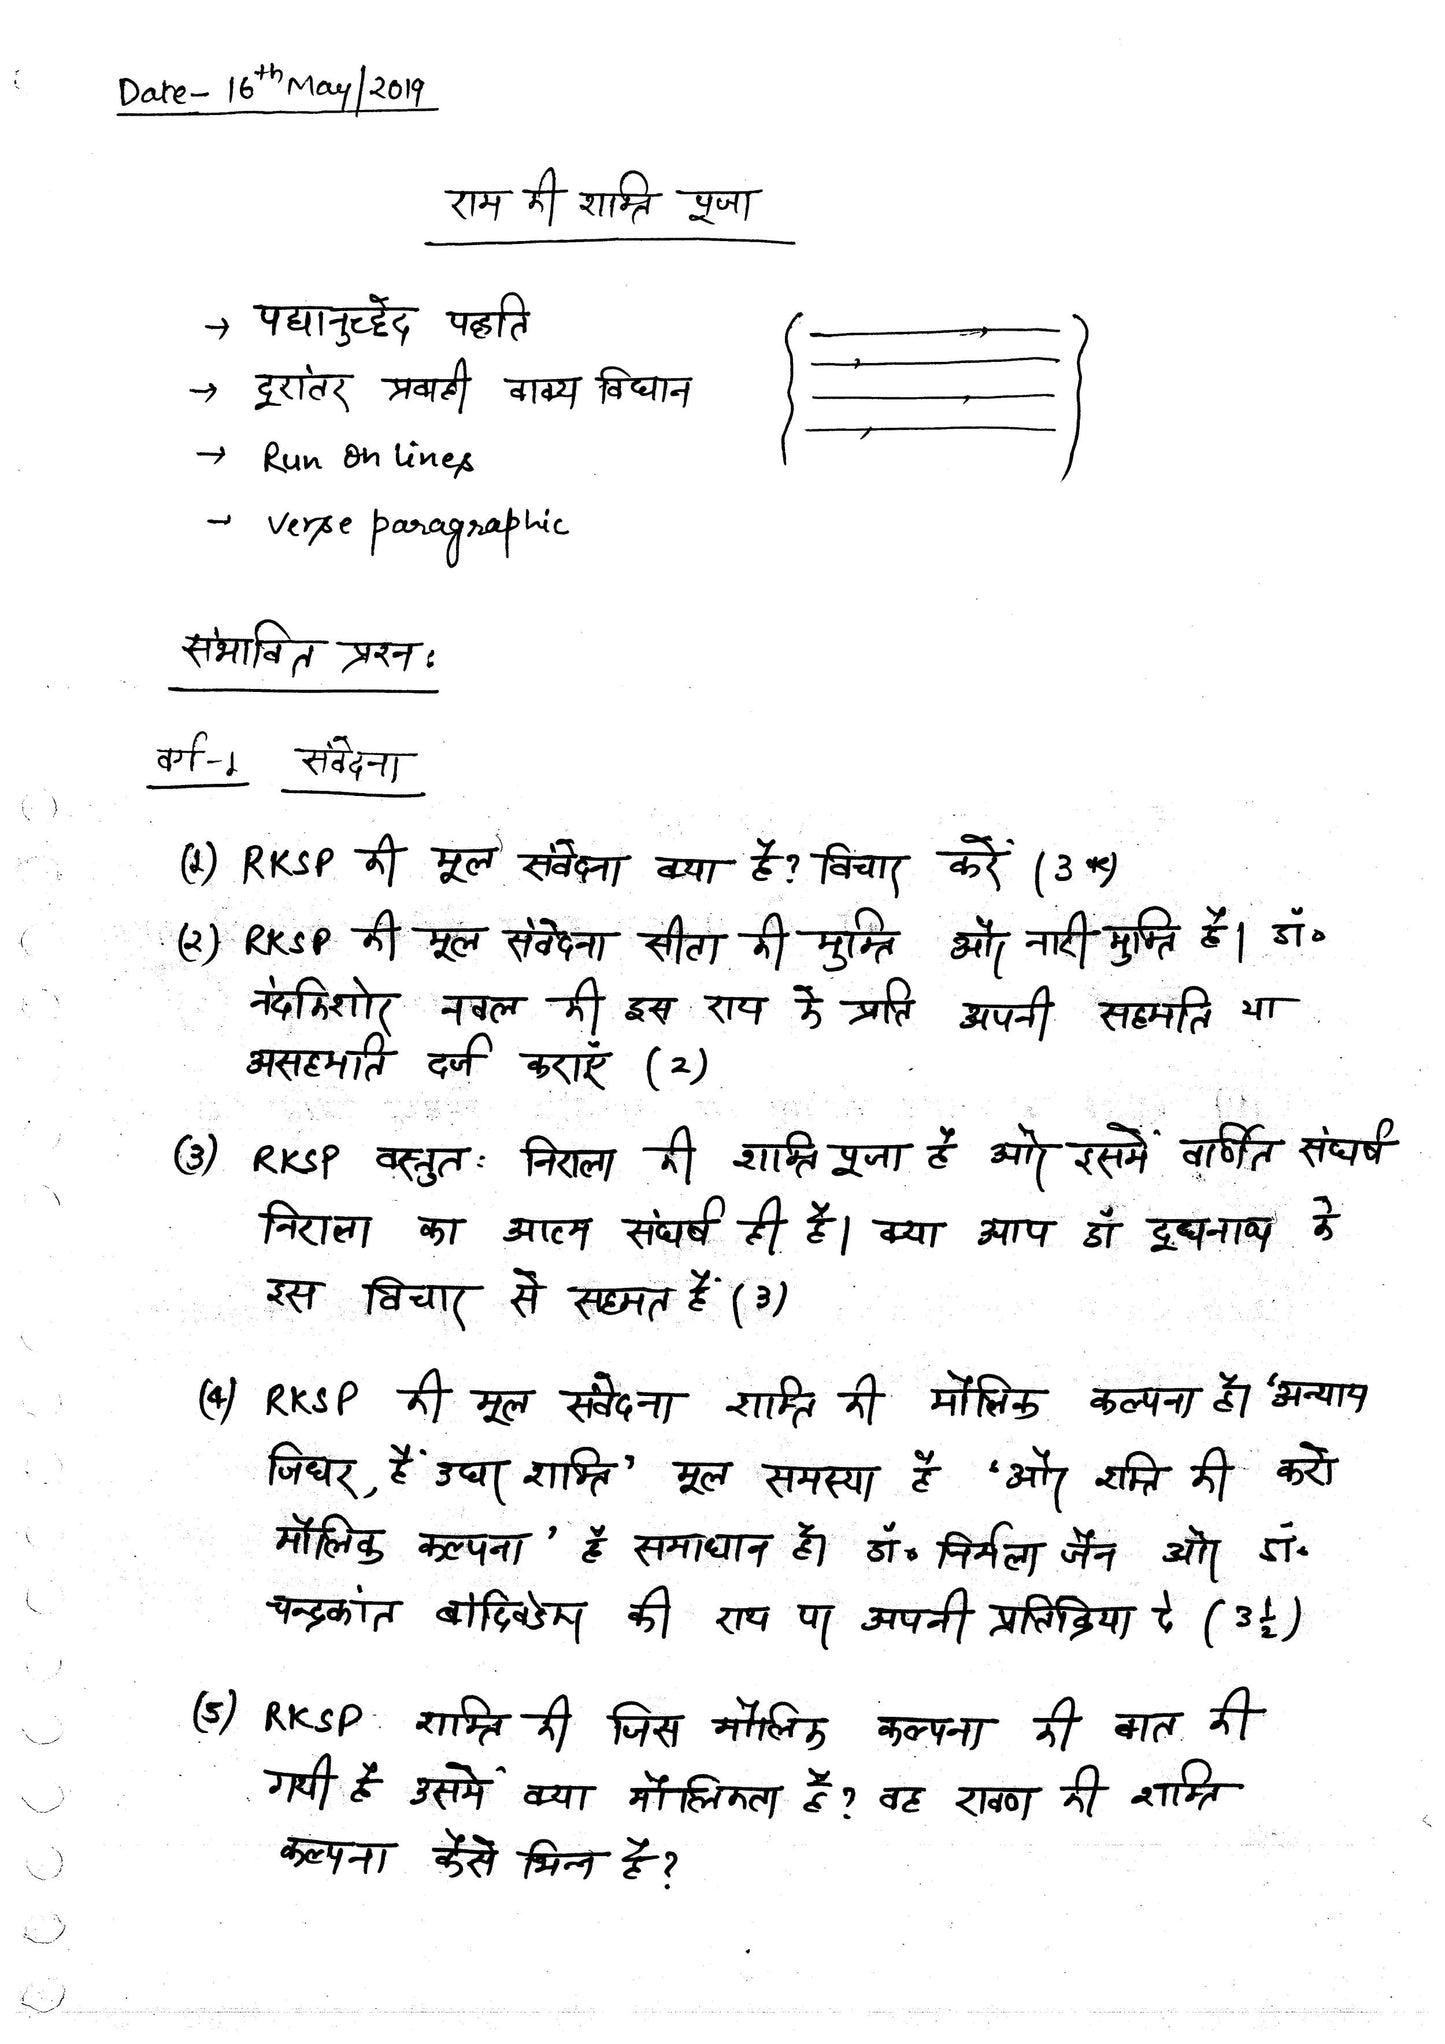 Date- 16th May/2019
राम की शक्ति पूजा
→ पद्यानुच्छेद पद्धति
→ दूरांतर प्रवाही वाक्य विधान
→ Run on lines
→ Verse paragraphic
संभावित प्रश्न:
वर्ग-1 संवेदना
(1) RKSP की मूल संवेदना क्या है? विचार करें (3*)
(2) RKSP की मूल संवेदना सीता की मुक्ति और नारी मुक्ति है। डॉ॰
नंदकिशोर नवल की इस राय के प्रति अपनी सहमति या
असहमति दर्ज कराएं (2)
(3) RKSP वस्तुत: निराला की शक्ति पूजा है और इसमें वर्णित संघर्ष
निराला का आत्म संघर्ष ही है। क्या आप डॉ दूधनाथ के
इस विचार से सहमत हैं (3)
(4) RKSP की मूल संवेदना शक्ति की मौलिक कल्पना है। 'अन्याय
जिधर, हैं उधर शक्ति' मूल समस्या है 'और शक्ति की करो
मौलिक कल्पना' हैं समाधान है। डॉ॰ निर्मला जैन और डॉ॰
चन्द्रकांत बांदिवडेकर की राय पर अपनी प्रतिक्रिया दे (3 1/2)
(5) RKSP शक्ति की जिस मौलिक कल्पना की बात की
गयी है उसमें क्या मौलिकता है? वह रावण की शक्ति
कल्पना कैसे भिन्न है?